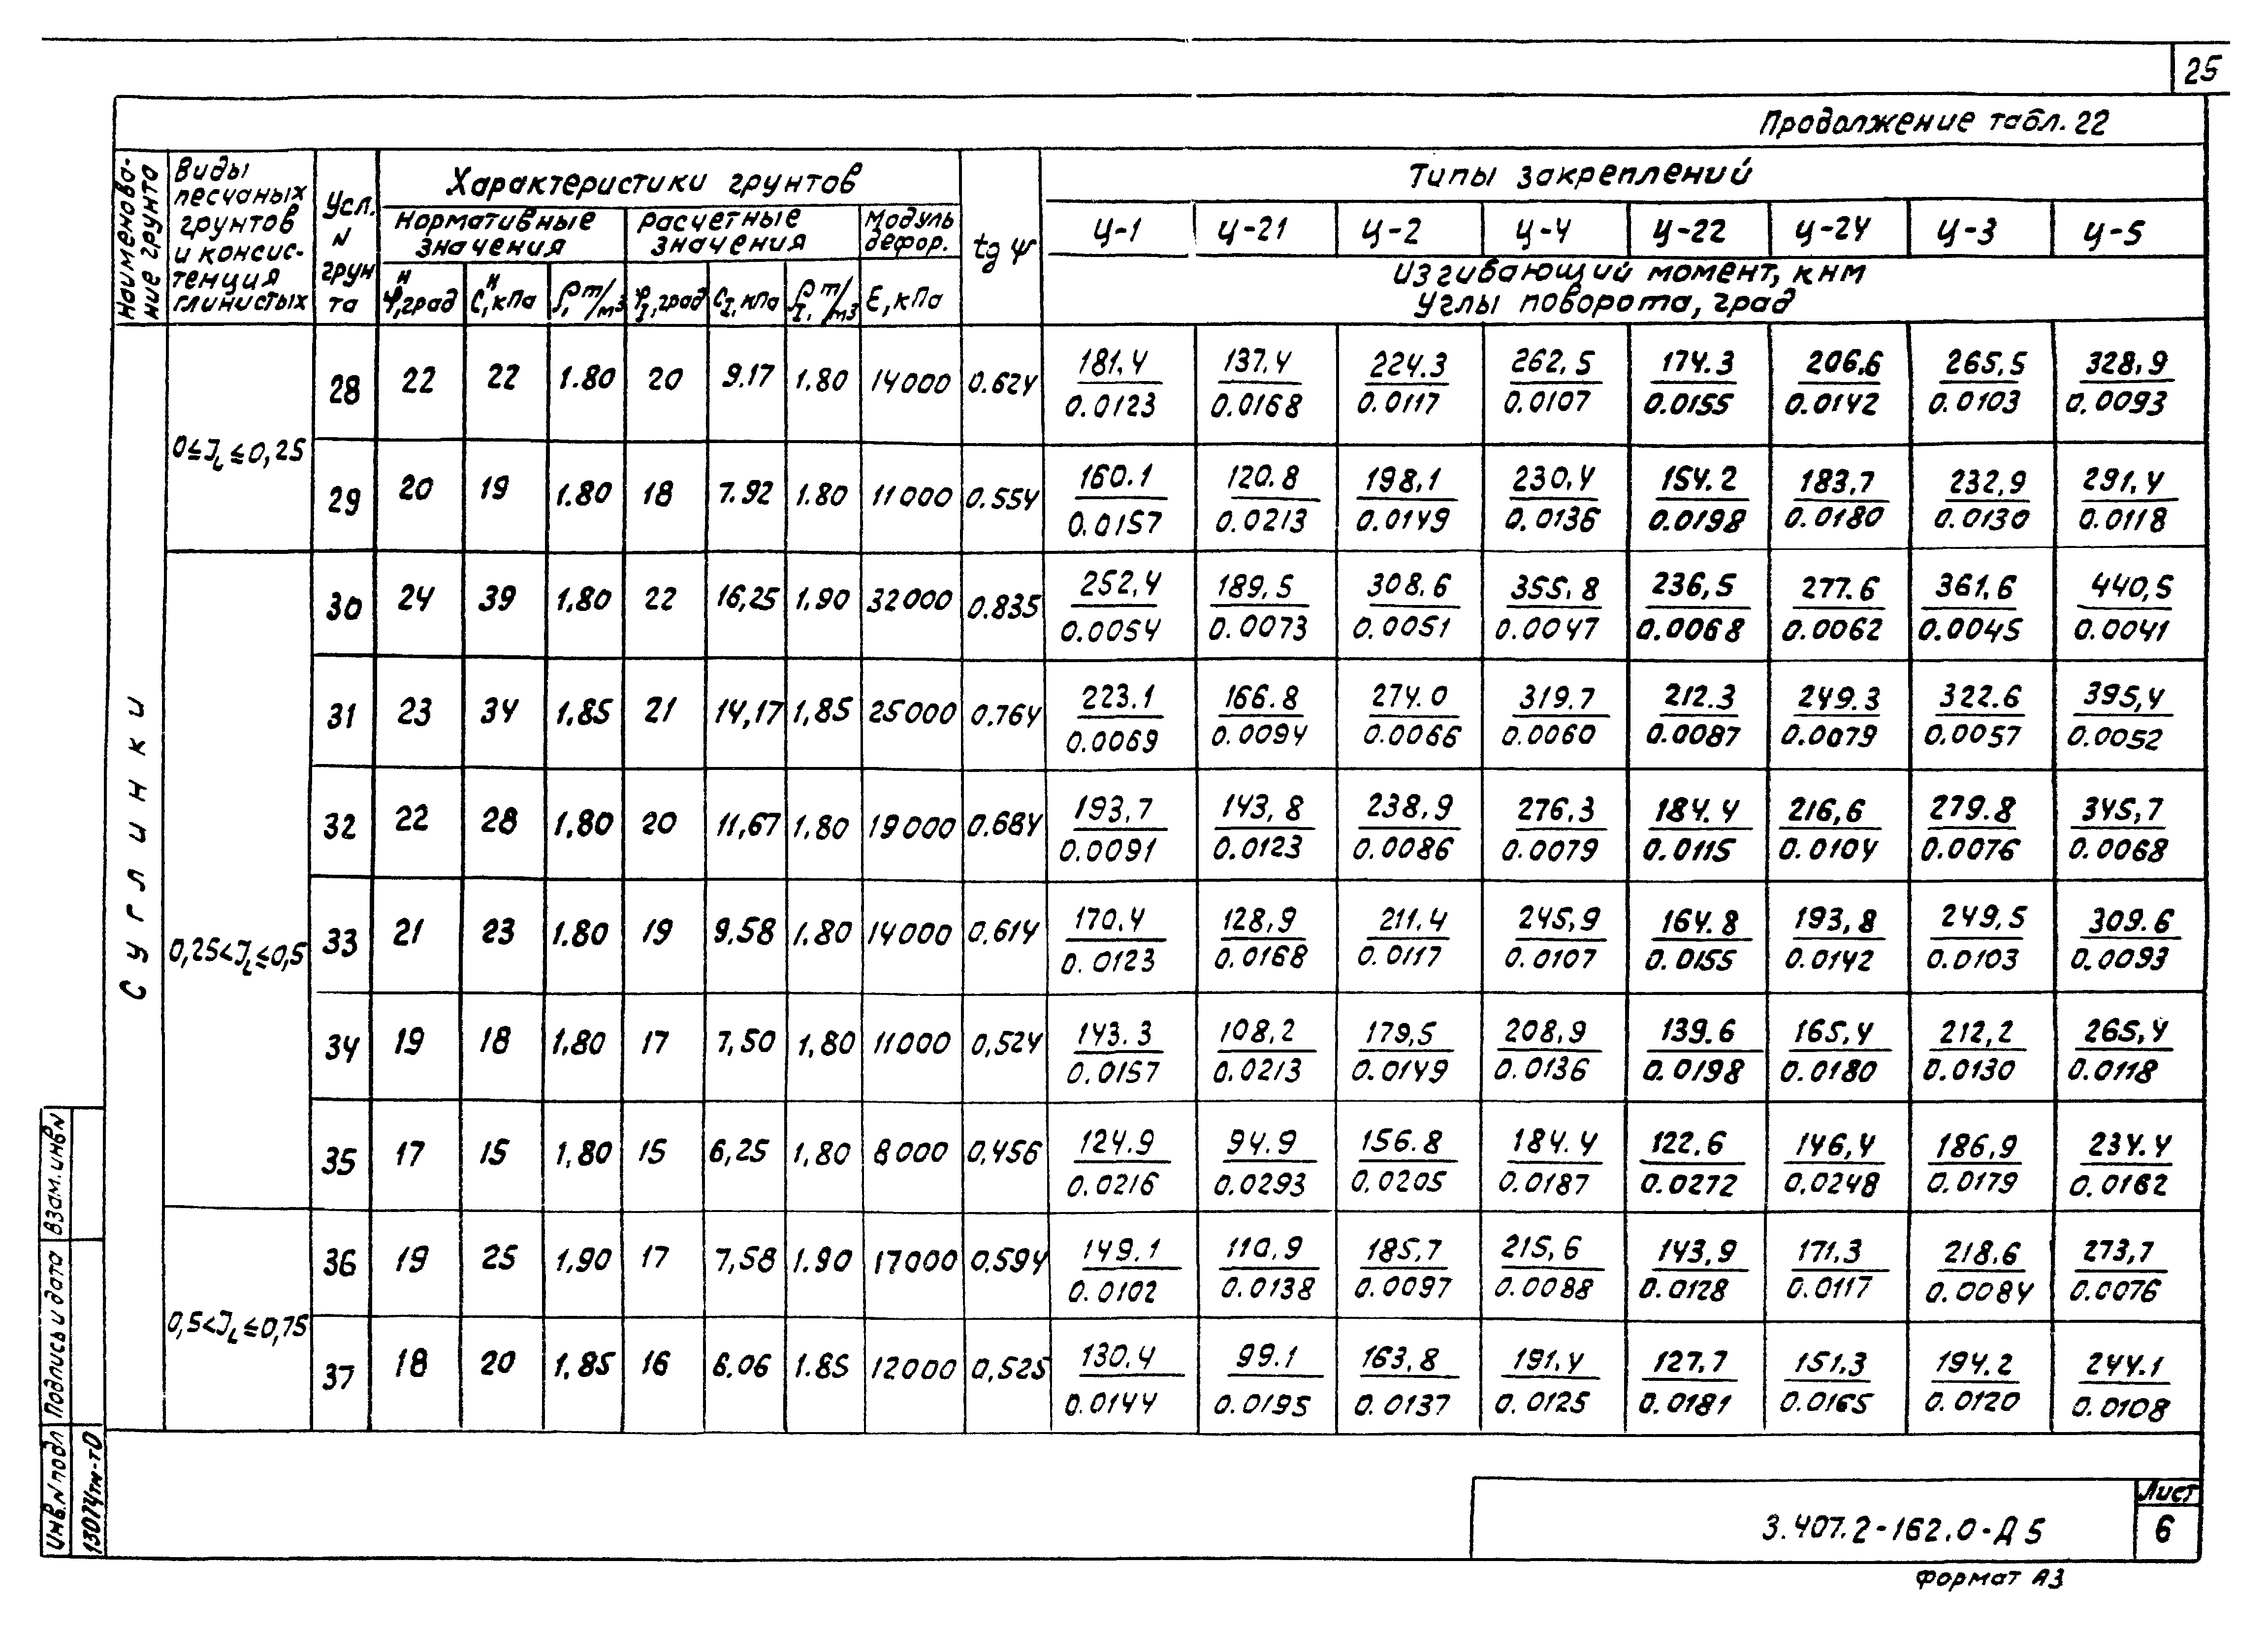 25
Продолжение табл. 22
Наименование грунта
Виды песчаных грунтов и консистенция глинистых
Усл. N грунта
Характеристики грунтов
Нормативные значения
Расчетные значения
Модуль дефор.
φᴴ, град
Cᴴ, кПа
ρ, т/м3
φ_I, град
C_I, кПа
ρ_I, т/м3
E, кПа
tg ψ
Типы закреплений
Ц-1 Ц-21 Ц-2 Ц-4 Ц-22 Ц-24 Ц-3 Ц-5
Изгибающий момент, кнм
Углы поворота, град
Суглинки
0≤J_L≤0,25
28 22 22 1.80 20 9.17 1.80 14000 0.624 181,4 137,4 224.3 262,5 174.3 206.6 265,5 328,9
0.0123 0.0168 0.0117 0.0107 0.0155 0.0142 0.0103 0.0093
29 20 19 1.80 18 7.92 1.80 11000 0.554 160.1 120.8 198,1 230,4 154.2 183,7 232,9 291,4
0.0157 0.0213 0.0149 0.0136 0.0198 0.0180 0.0130 0.0118
0,25<J_L≤0,5
30 24 39 1,80 22 16,25 1.90 32000 0.835 252,4 189,5 308.6 355.8 236,5 277.6 361.6 440,5
0.0054 0.0073 0.0051 0.0047 0.0068 0.0062 0.0045 0.0041
31 23 34 1,85 21 14,17 1,85 25000 0.764 223.1 166.8 274.0 319.7 212.3 249.3 322.6 395,4
0.0069 0.0094 0.0066 0.0060 0.0087 0.0079 0.0057 0.0052
32 22 28 1,80 20 11,67 1.80 19000 0.684 193,7 143,8 238,9 276,3 184.4 216,6 279.8 345,7
0.0091 0.0123 0.0086 0.0079 0.0115 0.0104 0.0076 0.0068
33 21 23 1.80 19 9.58 1.80 14000 0.614 170.4 128,9 211,4 245,9 164.8 193,8 249,5 309.6
0.0123 0.0168 0.0117 0.0107 0.0155 0.0142 0.0103 0.0093
34 19 18 1,80 17 7,50 1,80 11000 0,524 143.3 108,2 179,5 208,9 139.6 165,4 212,2 265,4
0.0157 0.0213 0.0149 0.0136 0.0198 0.0180 0.0130 0.0118
35 17 15 1,80 15 6,25 1,80 8000 0,456 124.9 94.9 156.8 184.4 122.6 146,4 186,9 234.4
0.0216 0.0293 0.0205 0.0187 0.0272 0.0248 0.0179 0.0162
0,5<J_L≤0,75
36 19 25 1,90 17 7,58 1.90 17000 0.594 149.1 110,9 185,7 215,6 143,9 171,3 218.6 273,7
0.0102 0.0138 0.0097 0.0088 0.0128 0.0117 0.0084 0.0076
37 18 20 1,85 16 6.06 1.85 12000 0,525 130,4 99.1 163,8 191,4 127,7 151.3 194.2 244.1
0.0144 0.0195 0.0137 0.0125 0.0181 0.0165 0.0120 0.0108
Взам. инв N
Подпись и дата
Инв. N подл
13074тм-т0
3.407.2-162.0-Д5
Лист
6
Формат А3